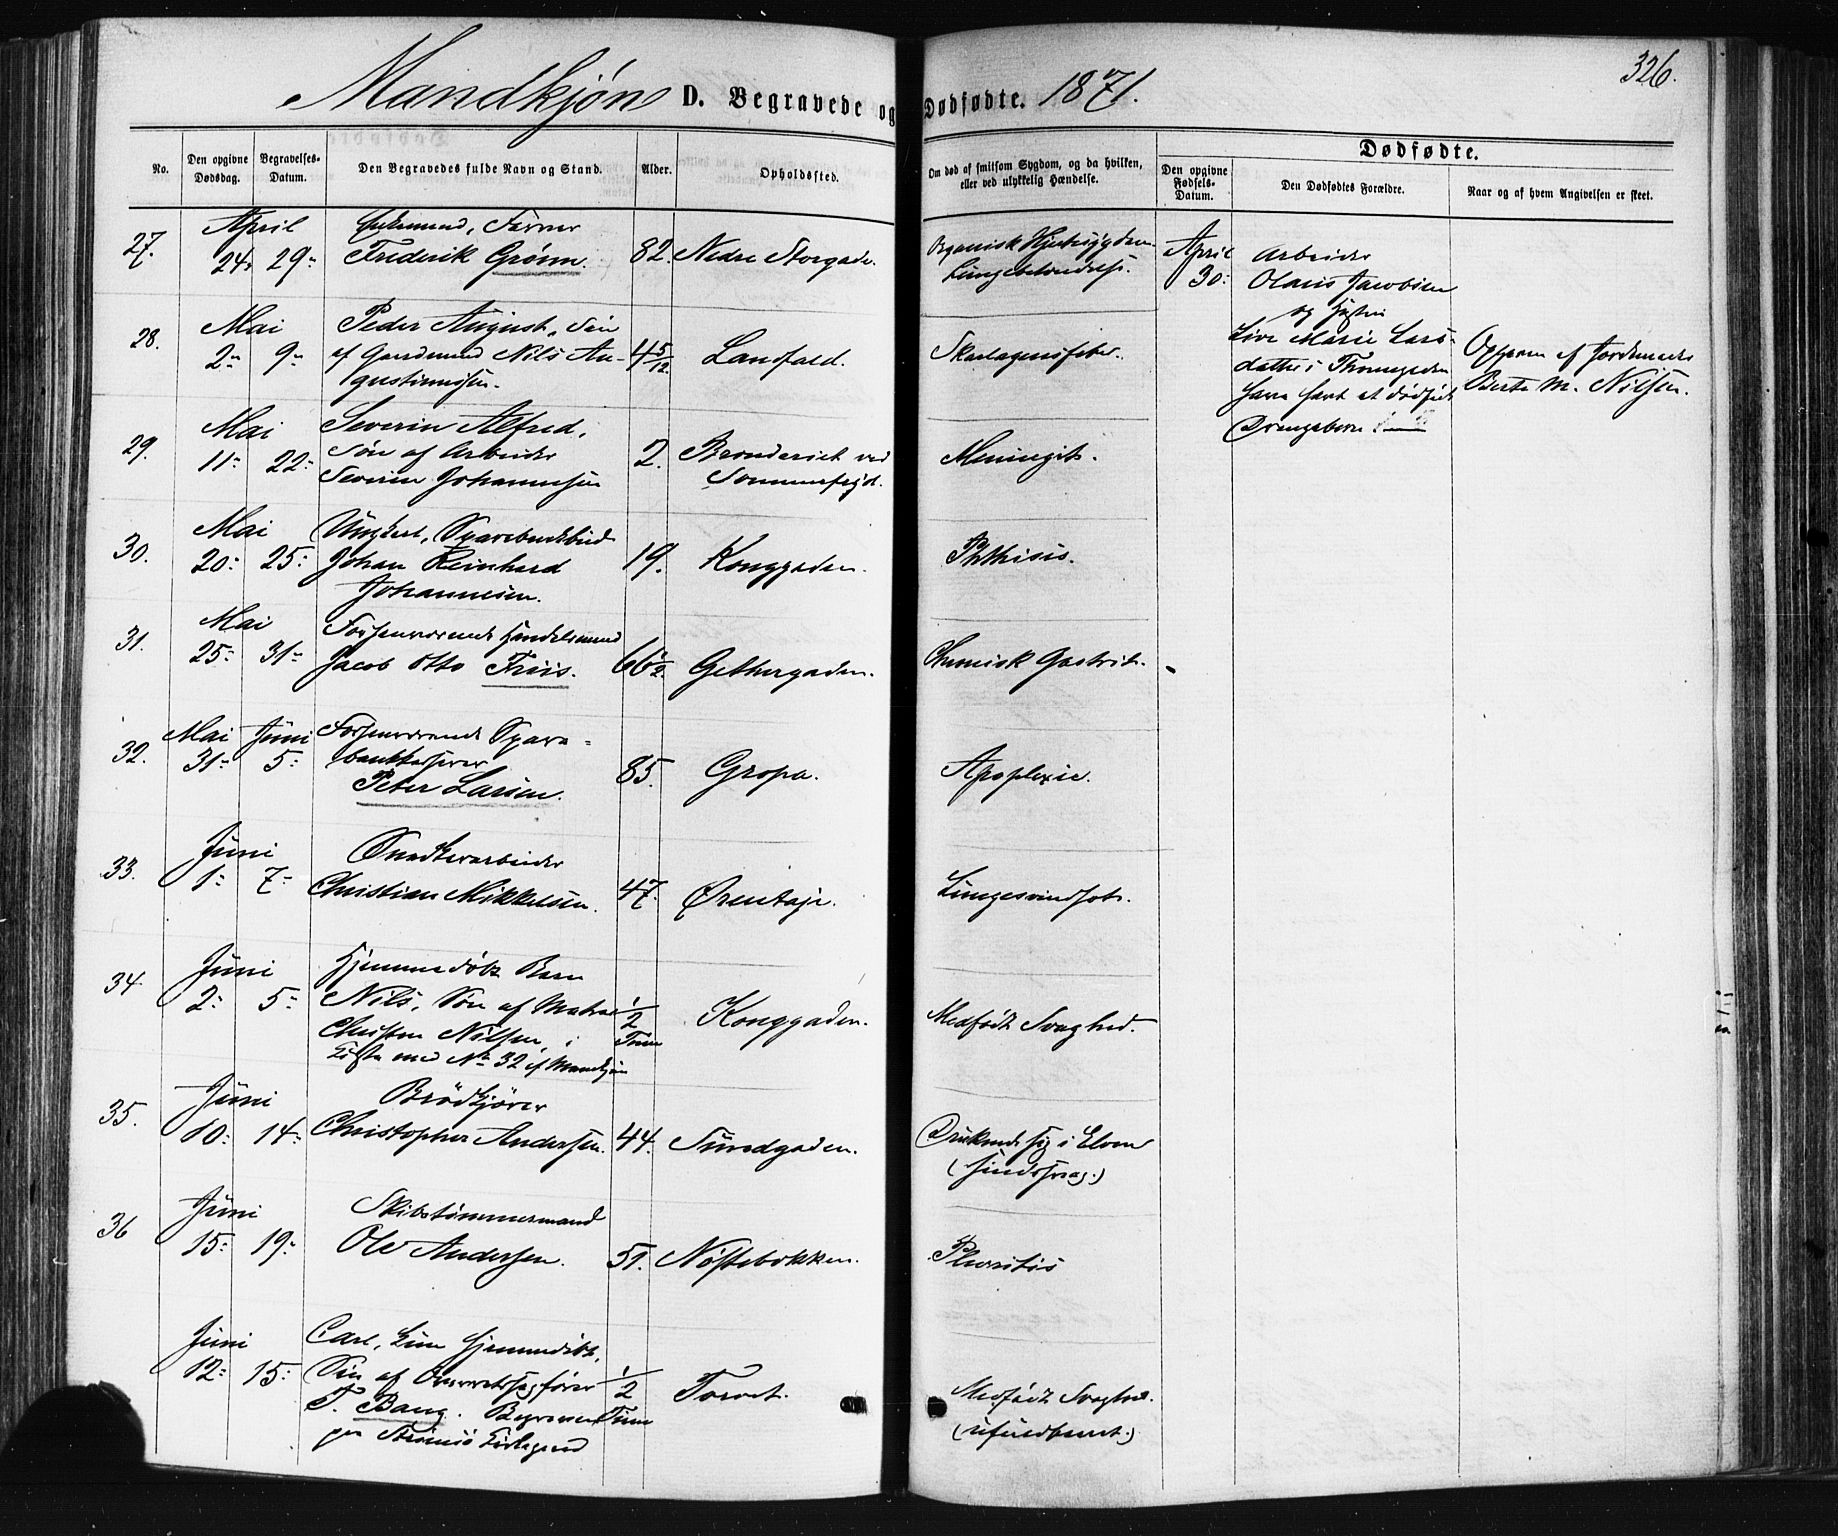 326.
Mandkjøn D. Begravede og Dødfødte. 1871.
Dødfødte.
No.
Den opgivne Dødsdag.
Begravelses-Datum.
Den Begravedes fulde Navn og Stand.
Alder.
Opholdssted.
Om død af smitsom Sygdom, og da hvilken, eller ved ulykkelig Hændelse.
Den opgivne Fødsels-Datum.
Den Dødfødtes Forældre.
Naar og af hvem Angivelsen er skeet.
27. April 24. 29.
Enkemand, Farver
Frederik Grønn. 82. Nedre Storgade.
Organisk Hjertesygdom
Lungebetændelse.
April 30.
Arbeider
Olaus Jacobsen
og Hustru
Live Marie Lars-
datter i Thomegaden
have havt et dødfødt
Drengebarn
Opgivn af Jordemoder
Berte M. Nilsen.
28. Mai 2 9
Peder August, Søn
af Gaardmand Nils Au-
gustinussen. 4 5/12 Landfald.
Skarlagensfeber.
29. Mai 11 22
Severin Alfred,
Søn af Arbeider
Severin Johannesen 2. Brænderiet ved
Sommerfryd.
Meningit.
30. Mai 20 25
Ungkarl, Sparebankbud
Johan Reinhard
Johannesen. 19. Konggaden.
Phthisis.
31. Mai 25 31
Forhenværende Handelsmand
Jacob Otto Friis. 66 1/2 Gethergaden.
Chronisk Gastrit.
32. Mai 31 Juni 5
Forhenværende Spare-
bankkasserer
Peter Larsen. 85. Gropa.
Apoplexie.
33. Juni 1 7
Snedkerarbeider
Christian Mikkelsen. 47. Ørentaje.
Lungesvindsot.
34 Juni 2 5
Hjemmedøbt Barn
Nils, Søn af Matros
Christen Nilsen, i
Kiste med No 32 af Mandkjøn
1/2 Time Konggaden.
Medfødt Svaghed.
35. Juni 10 14
Brødkjører
Christopher Andersen. 44. Sundgaden.
Druknede sig i Elven
(sindssvag.)
36 Juni 15 19
Skibstømmermand
Ole Andersen. 51. Nøstebakken.
Pleuritis
Juni 12 15
Carl, hjemmedøbt,
Søn af Overretssagfører
T. Bang. Begraven
paa Strømsø Kirkegaard
1/2 Time Torvet.
Medfødt Svaghed.
(ufuldbaaret.)